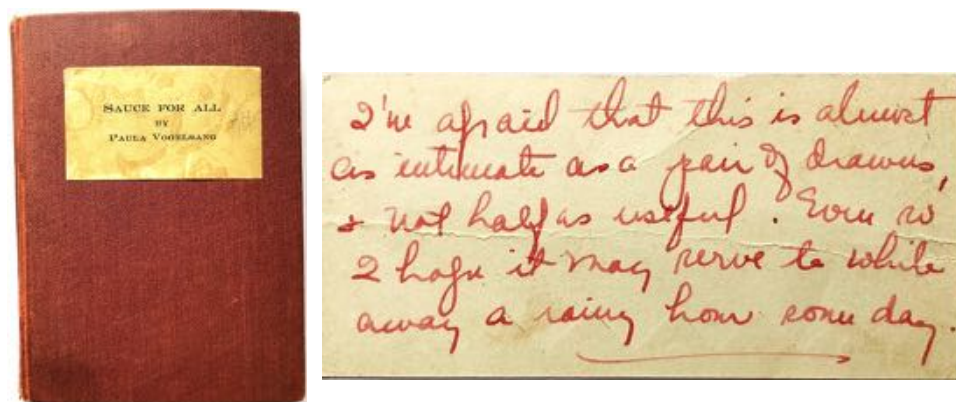 SAUCE FOR ALL
BY
PAULA VOGELSANG
I'm afraid that this is almost
as intimate as a pair of drawers,
& not half as useful. Even so
I hope it may serve to while
away a rainy hour some day.